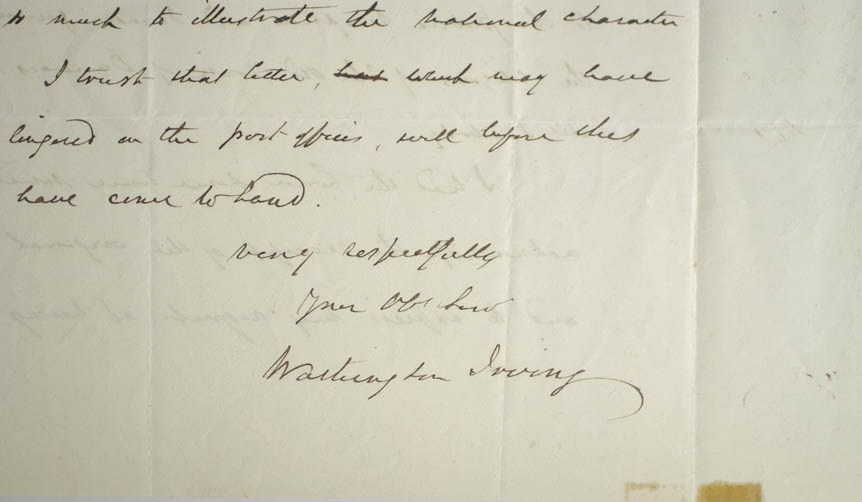 so much to illustrate the national character
I trust that letter, has which may have
lingered in the post offices, will before this
have come to hand.
very respectfully
Your Obt Servt
Washington Irving